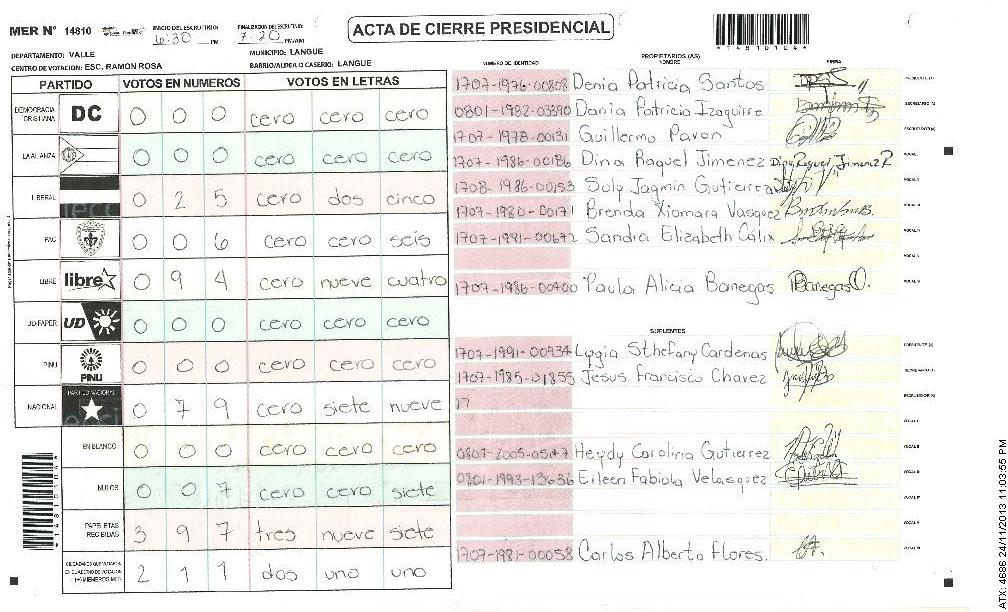 MER N° 14810
INICIO DEL ESCRUTINIO: 6:30 PM
FINALIZACION DEL ESCRUTINIO: 7:20 PM/AM
ACTA DE CIERRE PRESIDENCIAL
*148101044*
DEPARTAMENTO: VALLE
MUNICIPIO: LANGUE
CENTRO DE VOTACION: ESC. RAMON ROSA
BARRIO/ALDEA O CASERIO: LANGUE
PARTIDO VOTOS EN NUMEROS VOTOS EN LETRAS
DEMOCRACIA CRISTIANA DC 0 0 0 cero cero cero
LA ALIANZA 0 0 0 cero cero cero
LIBERAL 0 2 5 cero dos cinco
PAC 0 0 6 cero cero seis
LIBRE libre 0 9 4 cero nueve cuatro
UD-FAPER UD 0 0 0 cero cero cero
PINU PINU 0 0 0 cero cero cero
NACIONAL PARTIDO NACIONAL 0 7 9 cero siete nueve
EN BLANCO 0 0 0 cero cero cero
NULOS 0 0 7 cero cero siete
PAPELETAS RECIBIDAS 3 9 7 tres nueve siete
CIUDADANOS QUE VOTARON EN CUADERNO DE VOTACION (+) MIEMBROS MER 2 1 1 dos uno uno
PROPIETARIOS (AS)
NUMERO DE IDENTIDAD NOMBRE FIRMA
1707-1976-00808 Denia Patricia Santos PRESIDENTE (A)
0801-1982-03390 Dania Patricia Izaguirre SECRETARIO (A)
1707-1978-00131 Guillermo Pavon ESCRUTADOR (A)
1707-1986-00186 Dina Raquel Jimenez Dina Raquel Jimenez R VOCAL I
1708-1986-00153 Suly Jagmin Gutierrez VOCAL II
1707-1980-00171 Brenda Xiomara Vasquez VOCAL III
1707-1981-00672 Sandra Elizabeth Cálix VOCAL IV
VOCAL V
1707-1986-00400 Paula Alicia Banegas PBanegas O. VOCAL VI
SUPLENTES
1707-1991-00934 Lygia Sthefany Cardenas PRESIDENTE (A)
1707-1985-01855 Jesus Francisco Chavez SECRETARIO (A)
17 ESCRUTADOR (A)
VOCAL I
Heydy Carolina Gutierrez VOCAL II
0801-1993-13636 Eileen Fabiola Velasquez VOCAL III
VOCAL IV
VOCAL V
1707-1981-00058 Carlos Alberto Flores. VOCAL VI
*148101044*
ATX: 4686 24/11/2013 11:03:55 PM